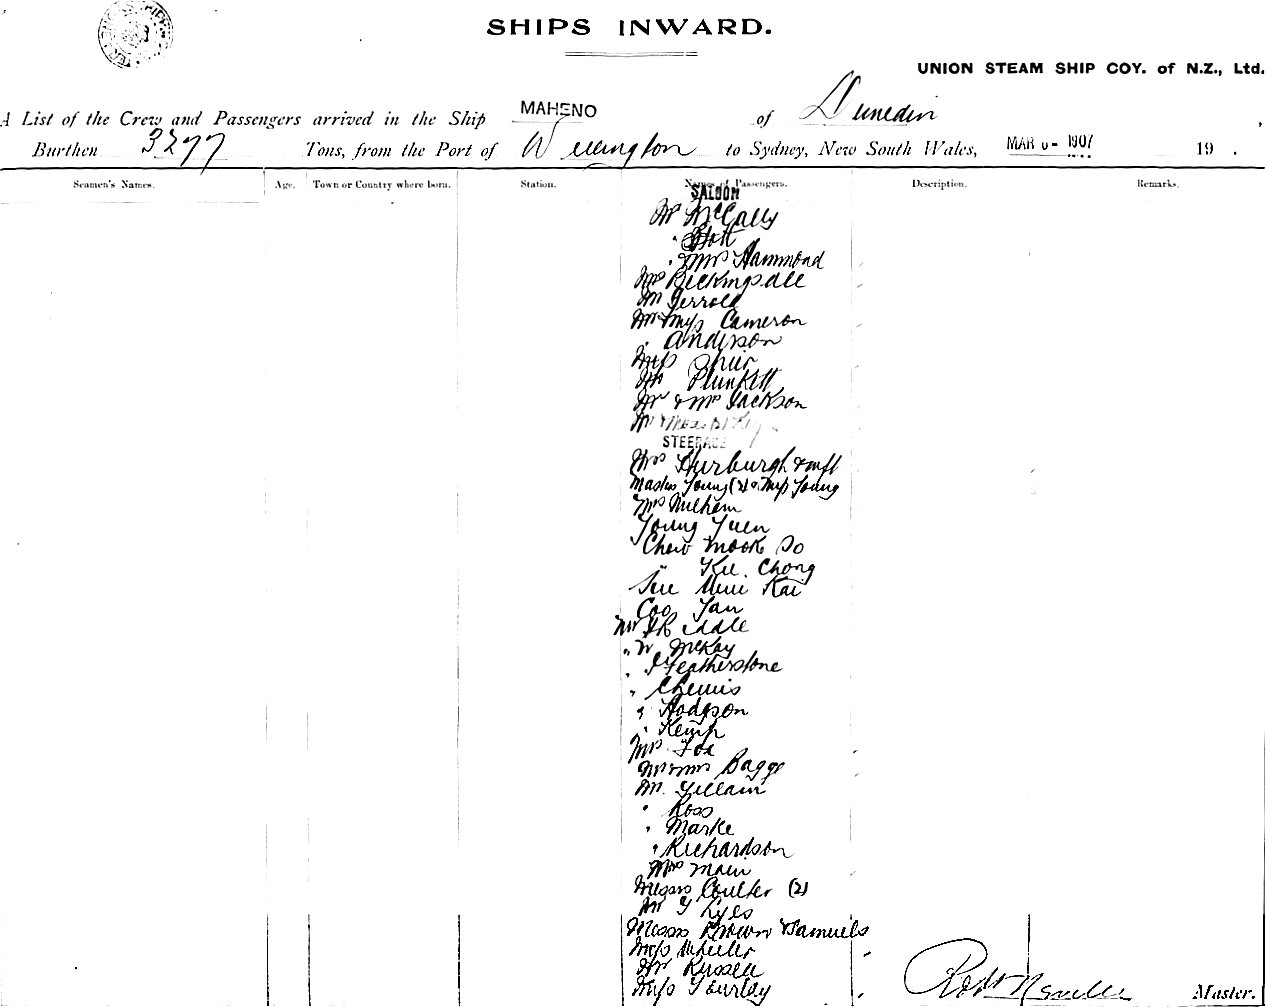 SHIPS INWARD.
UNION STEAM SHIP COY. of N.Z., Ltd.
A List of the Crew and Passengers arrived in the Ship MAHENO of Dunedin
Burthen 3277 Tons, from the Port of Wellington to Sydney, New South Wales, MAR 1907 19 .
Seamen's Names. Age. Town or Country where born. Station. Names of Passengers. Description. Remarks.
SALOON
Mr McCally
" Stott
" Mrs Hammond
Mrs Bickingsdale
Mr Jerrold
Mr Miss Cameron
" Anderson
Miss
Mr Plunkett
Mr & Mrs Jackson
Mr
STEERAGE
Mrs Hurburgh & inft
Masters Young (2) & Miss Young
Mrs
Young Yuen
Chew Mook So
" Kee Chong
Kai
Coo Yan
Mr Riddle
" W McKay
" J Featherstone
" Chemis
" Hodgson
" Kemp
Mrs Fox
Mr & Mrs Bagge
Mr. Gillam
" Ross
" Marke
" Richardson
Mrs Main
Messrs Coulter (2)
Mr Lyes
Messrs Brown & Samuels
Miss Wheeler
Mr Russell
Miss Gourlay
Robt Neville Master.